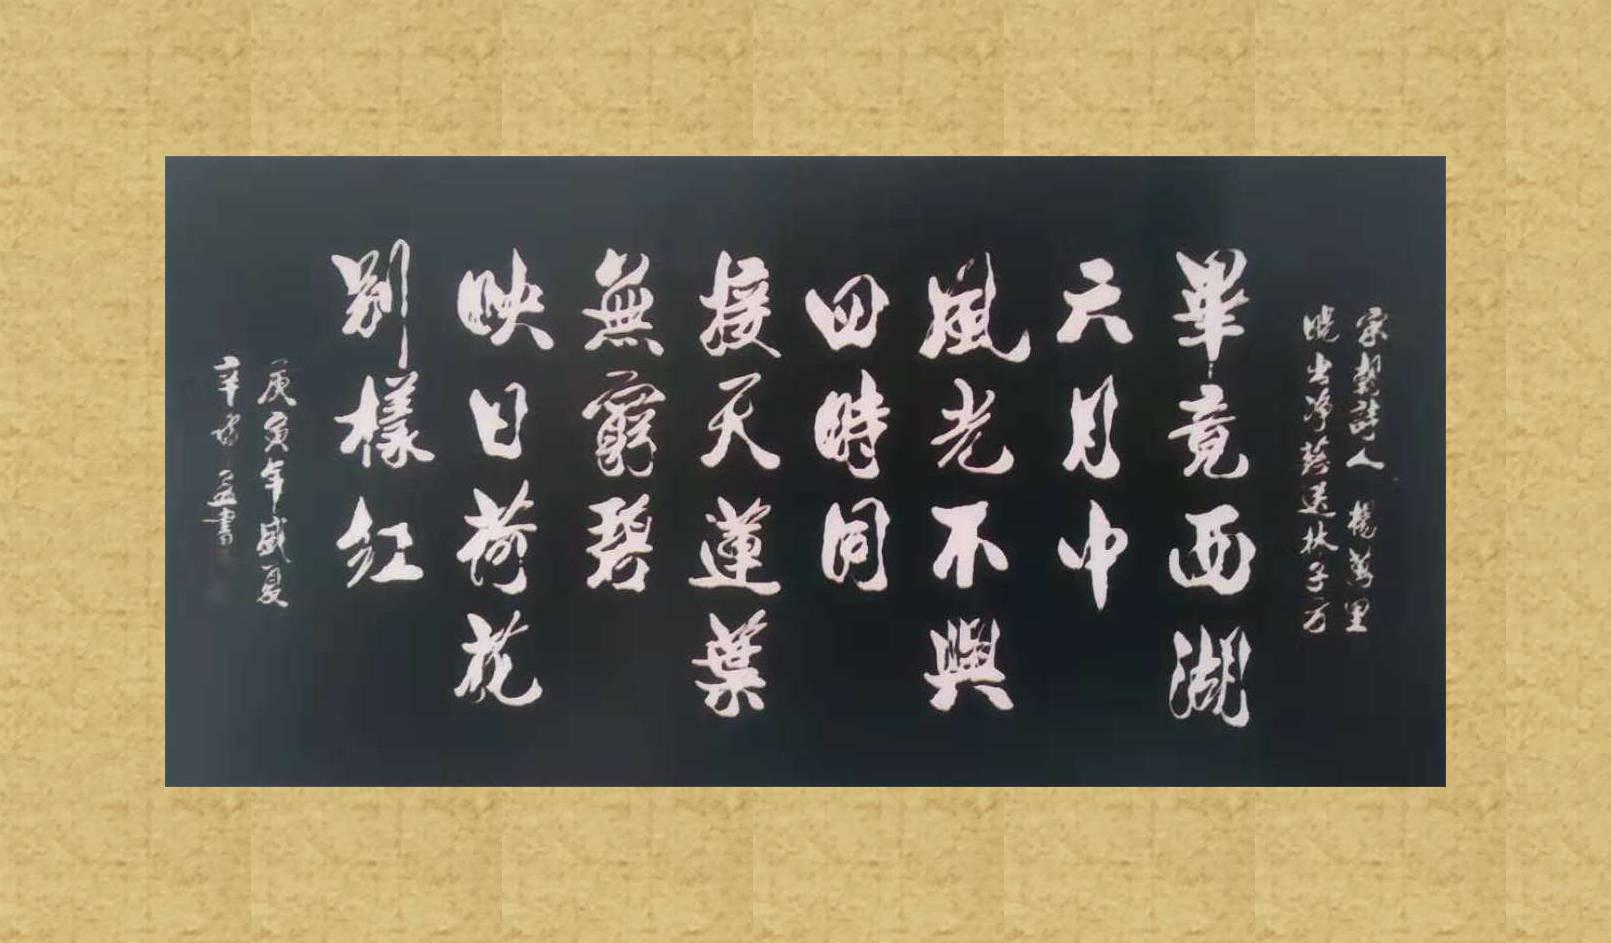 宋朝詩人 楊萬里
曉出淨慈送林子方
畢竟西湖
六月中
風光不與
四時同
接天蓮葉
無窮碧
映日荷花
別樣紅
庚寅年盛夏
辛
書